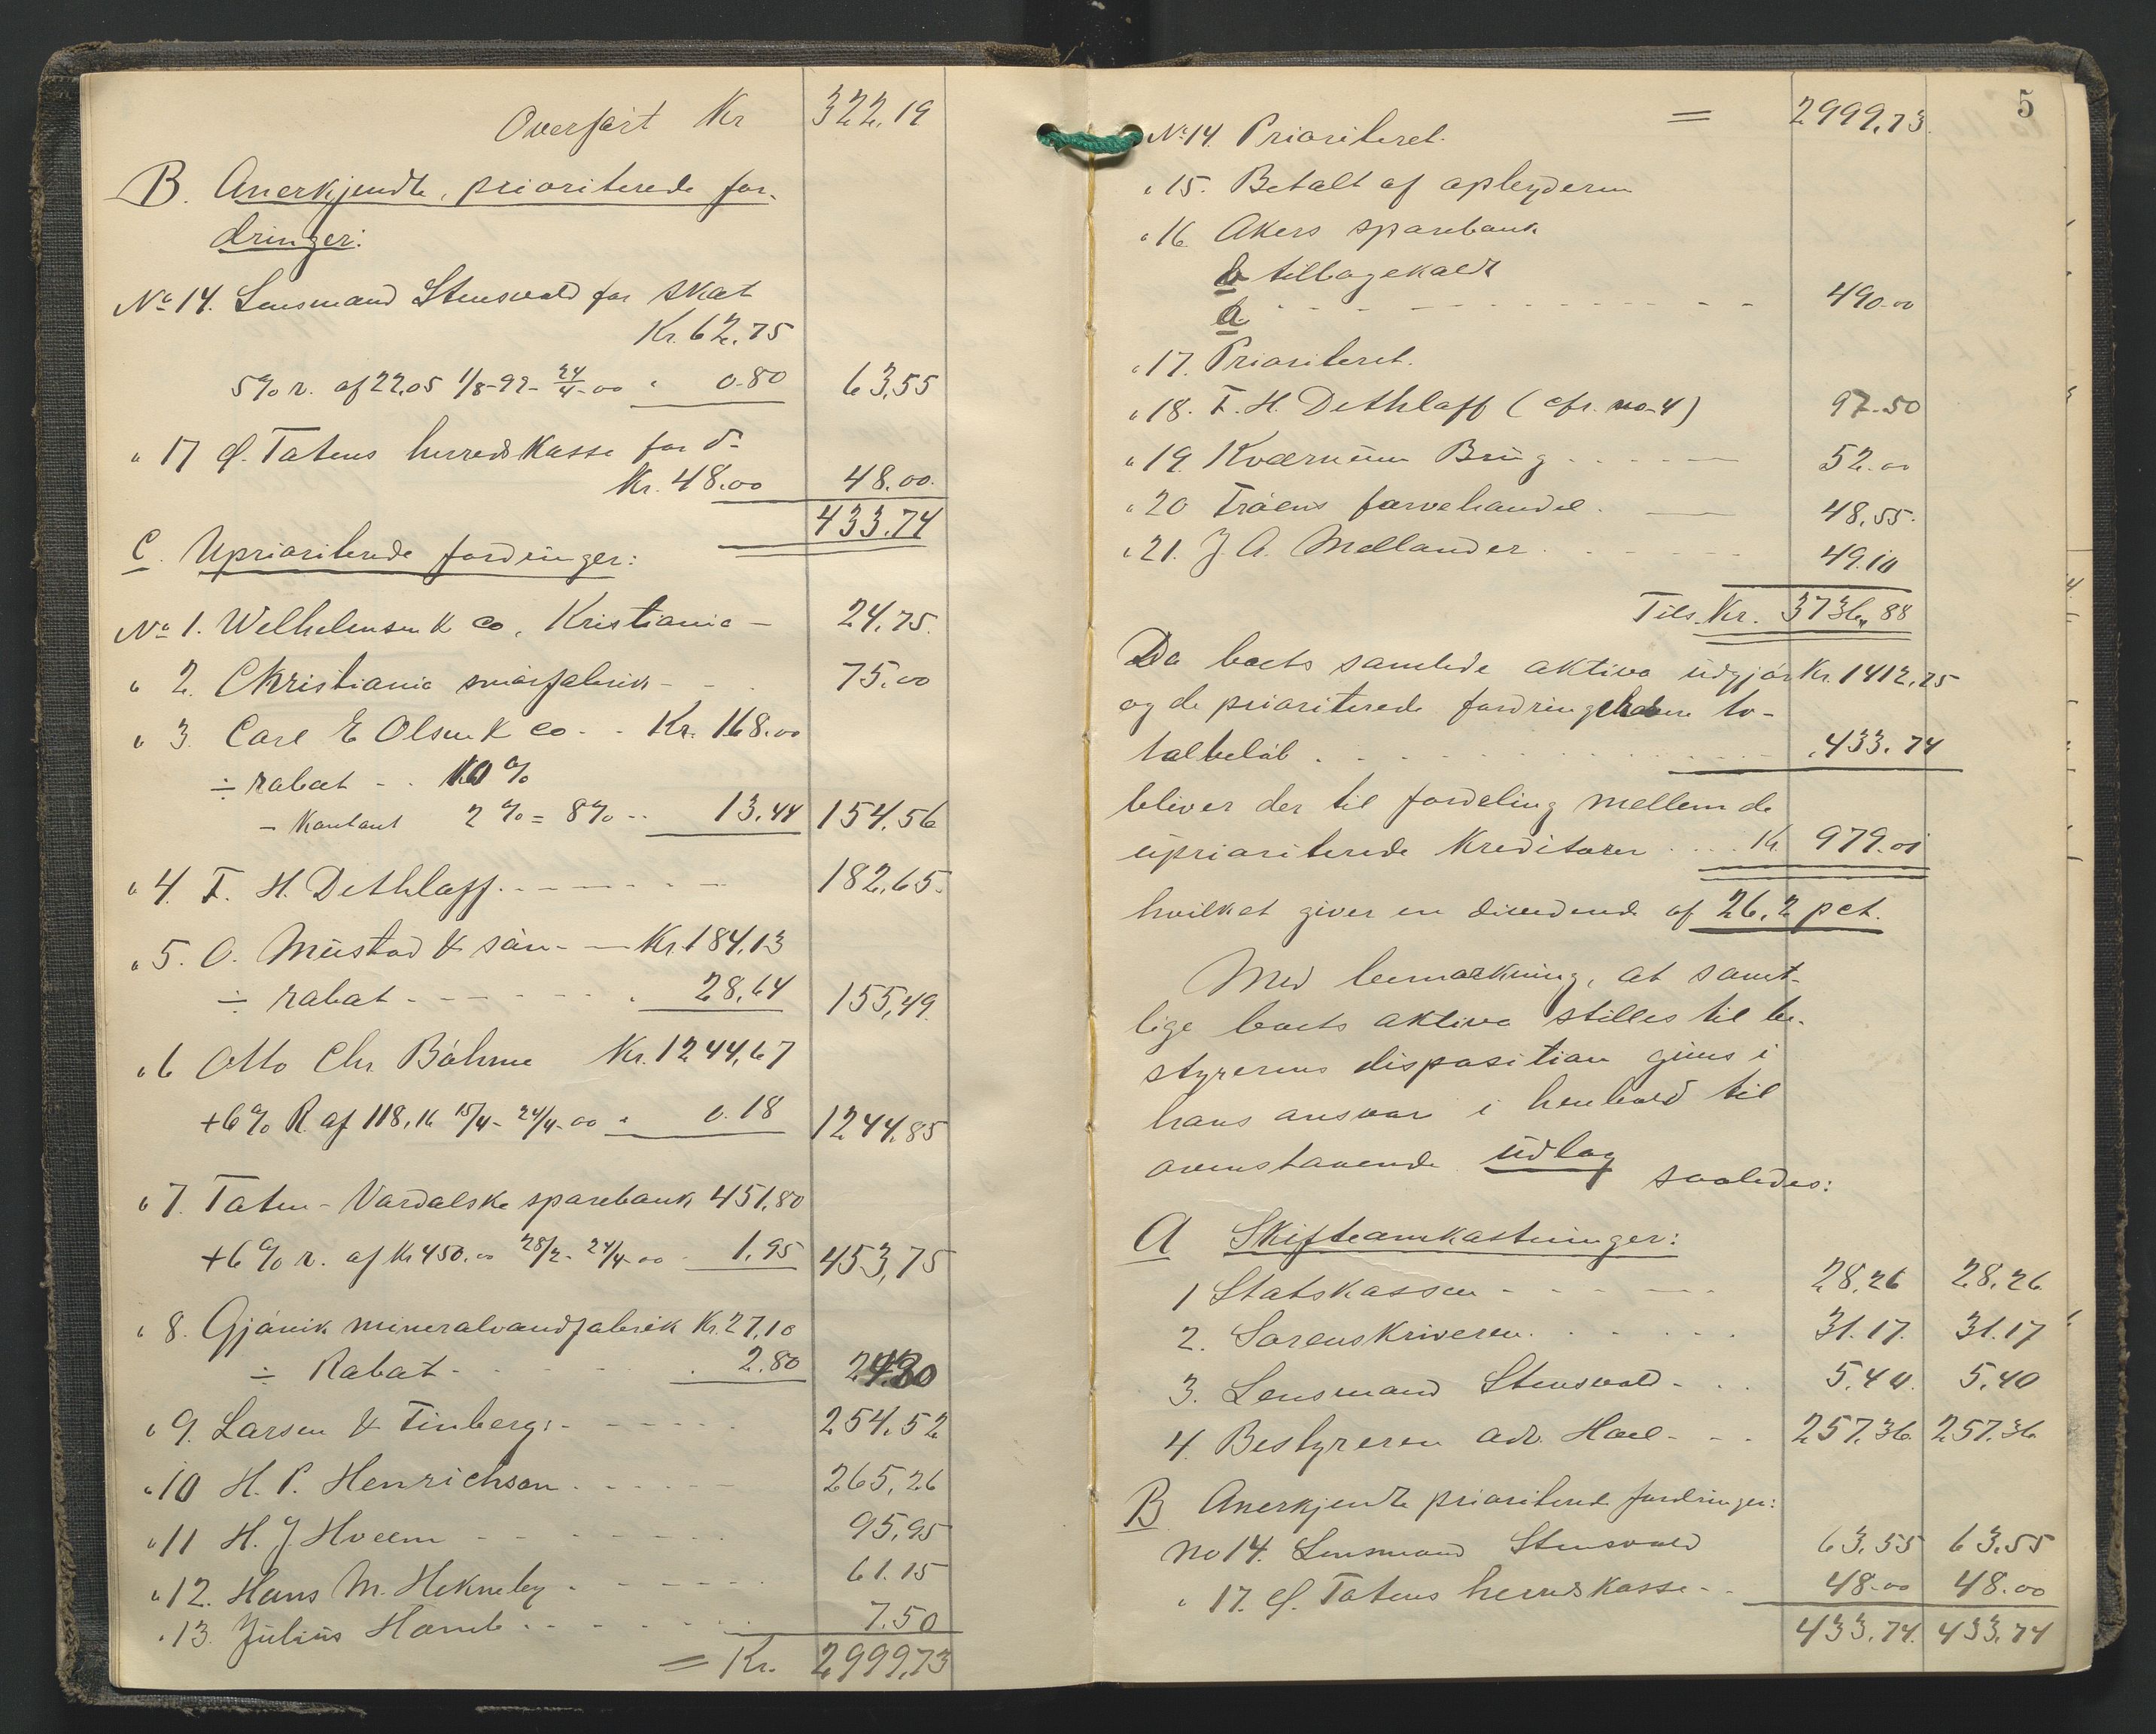 Overført Kr 322,19
B. Anerkjendte, prioriterede for-
dringer:
No 14. Lensmand Stensvold for skat
Kr. 62,75
5% r. af 22,05 1/8-99- 24/4-00 " 0.80 63,55
" 17 Ø. Totens herredskasse for do
Kr. 48.00 48.00.
433.74
C. Uprioriterede fordringer:
No 1. Welhelmsen & Co, Kristiania - 24,75.
" 2. Christiania smørfabrik - - 75.00
" 3. Carl E Olsen & Co - - Kr. 168.00
÷ rabat - . 10%
- Kontant 2% = 8% - - 13.44 154,56
" 4. F. H. Dethloff. - - - - 182,65.
" 5. O. Mustad & søn - - Kr. 184,13
÷ rabat - - - - . 28,64 155,49.
" 6 Otto Chr. Bøhme Kr. 1244,67
+ 6% R. af 118,16 15/4- 24/4-00 " 0.18 1244,85
" 7. Toten-Vardalske sparebank 451,80
+ 6% r. af Kr 450.00 28/2- 24/4-00 - 1.95 453,75
" 8. Gjøvik mineralvandfabrik Kr. 27,10
÷ Rabat - - - . 2.80 24.30
" 9. Larsen & Tinberg: - - - - 254,52
" 10 H. P. Henrichson . - - - - 265,26
" 11 H. J. Hveem - - - - 95,95
" 12. Hans M. Hekneby . - - - - 61.15
" 13. Julius Hamb . . - - - 7.50
= Kr. 2999,73
5
= 2999,73
No 14. Prioriteret.
" 15. Betalt af opbyderen
" 16 Akers sparebank
b tilbagekaldt
a. - - - - - - - - - 490.00
" 17. Prioriteret.
" 18. F. H. Dethloff (cfr. no 4) 97.50
" 19. Kværnum Brug - - - - 52.00
" 20 Tråens farvehandel . - 48,55.
" 21. J. A. Mellander . - - - - 49.10
Tils. Kr. 3736,88
Da boets samlede aktiva udgjør Kr. 1412,75
og de prioriterede fordringshavere to-
talbeløb . . - - - - - - - 433.74
bliver der til fordeling mellem de
upriorterede kreditorer . . . . Kr. 979.01
hvilket giver en dividende af 26,2 pct.
Med bemærkning, at samt-
lige boets aktiva stilles til be-
styrerens disposition gives i
hans ansvar i henhold til
ovenstaaende udlæg saaledes:
A Skifteomkostninger:
1 Statskassen - - - - - 28,26 28,26
2. Sorenskriveren. - - - - 31.17. 31.17
3. Lensmand Stensvold - . . 5.40. 5.40
4. Bestyreren adv. Hoel - - - 257.36 257.36
B Anerkjendte prioriterede fordringer:
no 14. Lensmand Stensvold 63,55 63,55
" 17. Ø. Totens herredskasse - - 48.00 48.00
433,74. 433,74